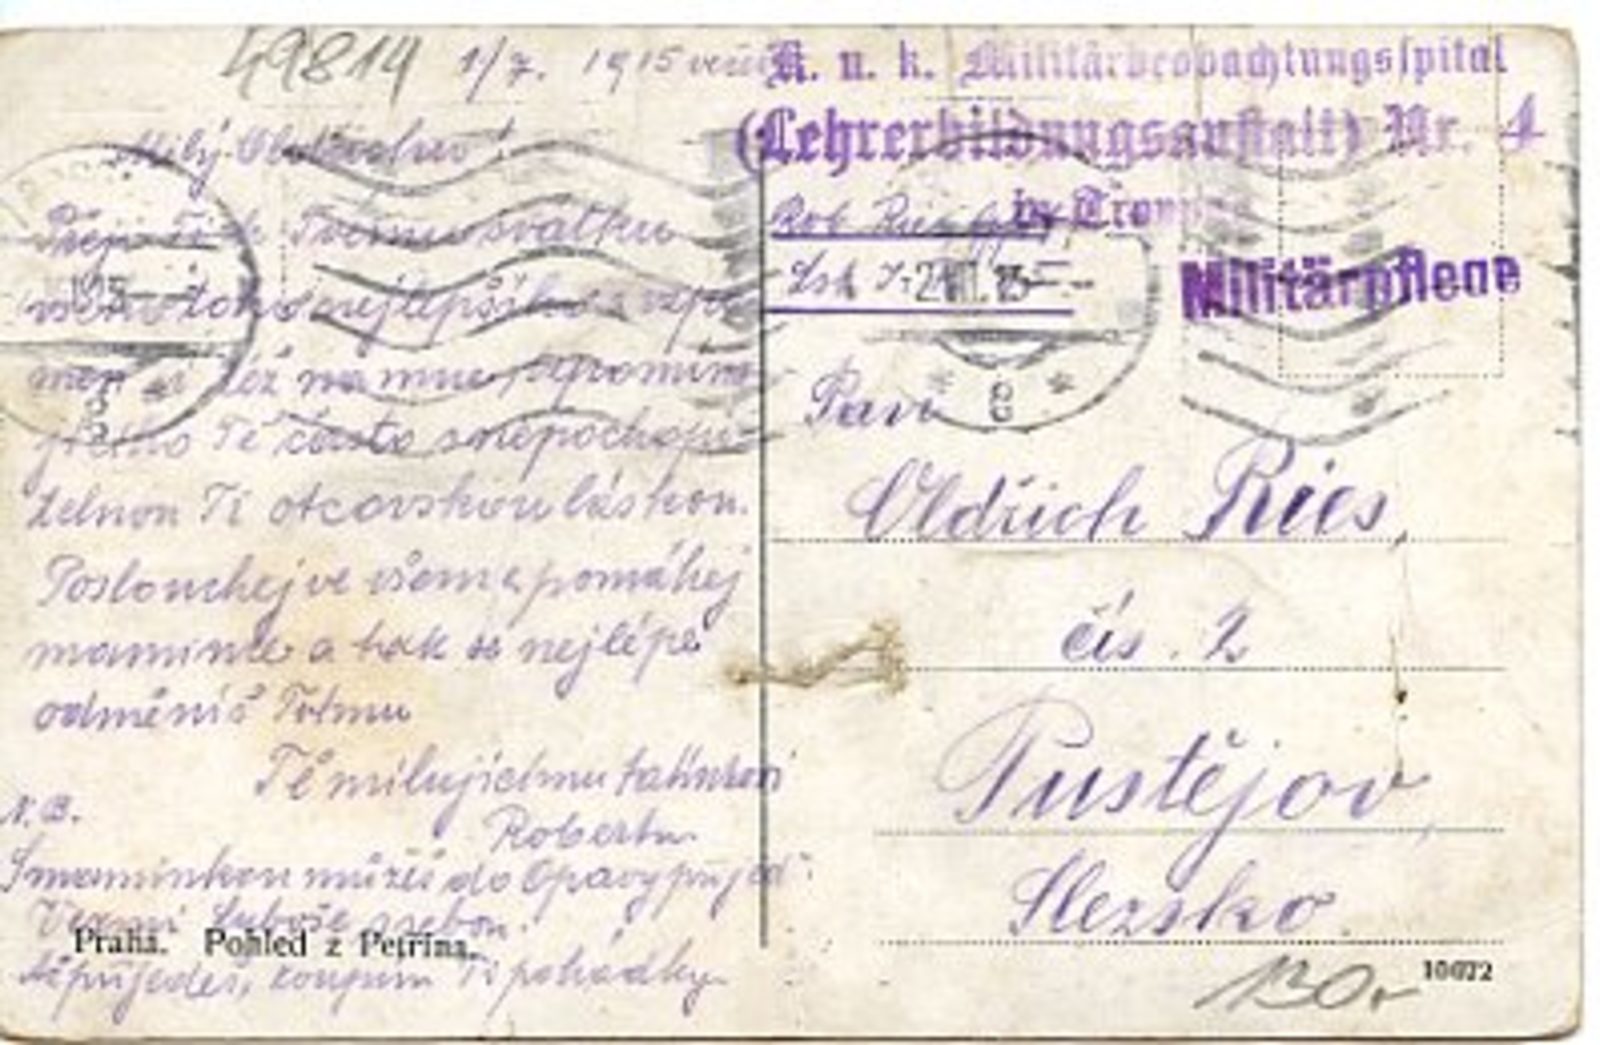 49814 1/7. 1915
Milý Oldřichu!
Přeji Ti k Tvému svátku
všeho toho nejlepšího a vzpo
meň si též na mne, vzpomína
jícího Tě často s nepochopi
telnou Ti otcovskou láskou.
Poslouchej ve všem a pomáhej
mamince a tak se nejlépe
odměníš Tvému
Tě milujícímu tatínkovi
Robertu.
N.B.
S maminkou můžeš do Opavy přijed
Vezmi Luboše s sebou.
Až přijedeš, koupím Ti pohádky.
Praha. Pohled z Petřína.
K. u. k. Militärbeobachtungsspital
(Lehrerbildungsanstalt) Nr. 4
in Troppau
Rob. Ries
2.VII.15
Militärpflege
Pan
Oldřich Ries,
čís. 2
Pustějov,
Slezsko.
10072
130,-